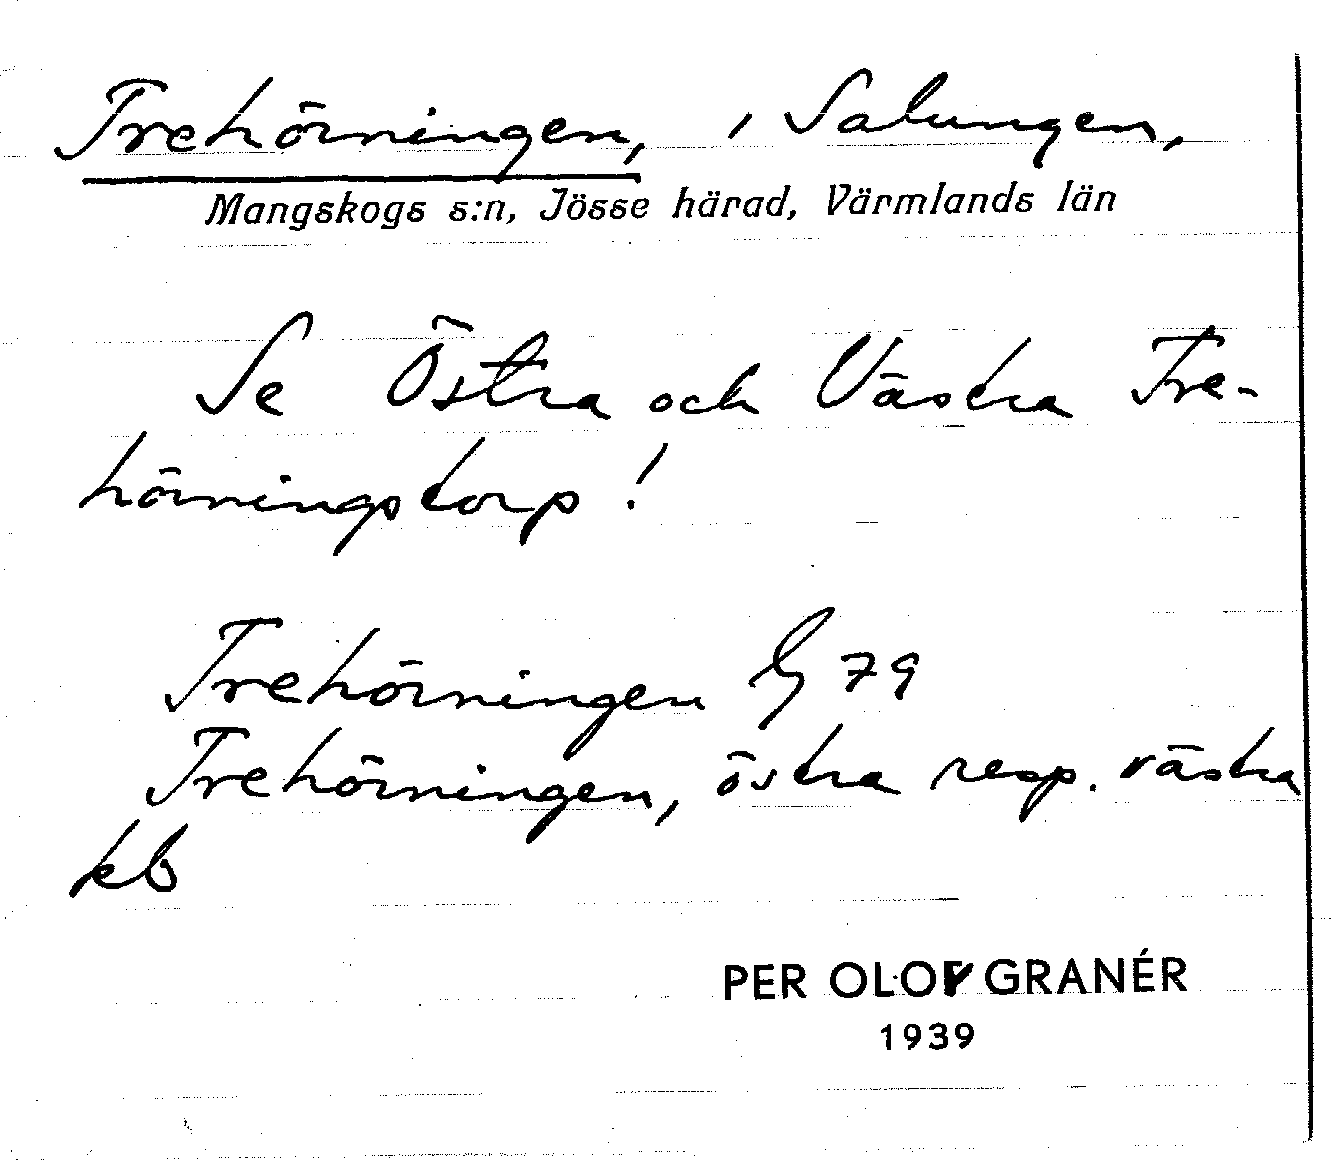 Trehörningen, i Salungen,
Mangskogs s:n, Jösse härad, Värmlands län
Se Östra och Västra Tre-
hörningstorp!
Trehörningen Ij 79
Trehörningen, östra resp. västra
kb
PER OLOV GRANÉR
1939